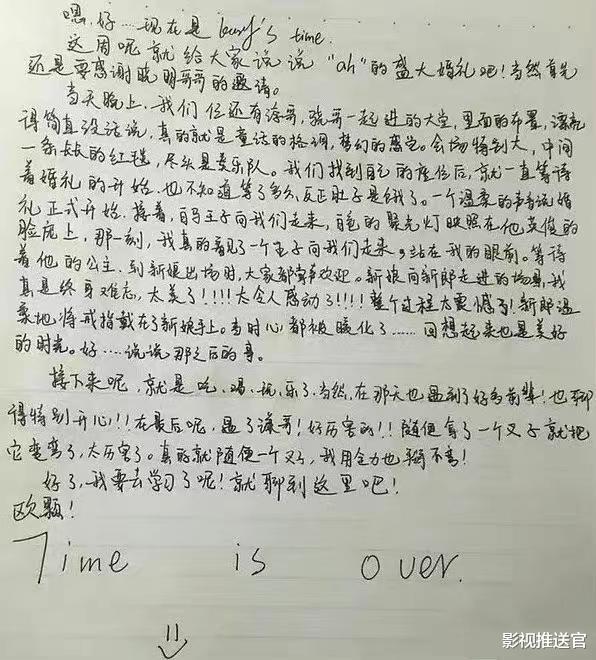 嗯,好……现在是 boy's time.
这周呢就给大家说说"ah"的盛大婚礼吧!当然首先
还是要感谢晓明哥哥的邀请。
当天晚上,我们仨还有涛哥,骁哥一起进的大堂,里面的布置,漂亮
得简直没话说,真的就是童话的格调,梦幻的感觉。会场特别大,中间
一条长长的红毯,尽头是美乐队。我们找到自己的座位后,就一直等待
着婚礼的开始.也不知道等了多久,反正肚子是饿了。一个温柔的声音说婚
礼正式开始.接着,白马王子向我们走来,白色的聚光灯映照在他英俊的
脸庞上,那一刻,我真的看见了一个王子向我们走来,站在我的眼前。等待
着他的公主.到新娘出场时,大家都掌声欢迎。新娘向新郎走进的场景,我
真是终身难忘,太美了!!!!太令人感动了!!!!整个过程太震憾了!新郎温
柔地将戒指戴在了新娘手上。当时心都被暖化了……回想起来也是美好
的时光。好……说说那之后的事。
接下来呢,就是吃、喝、玩、乐了.当然,在那天也遇到了好多前辈!也聊
得特别开心!!在最后呢,遇了谦哥!好厉害的!!随便拿了一个叉子就把
它变弯了,太厉害了。真的就随便一个叉子,我用全力也掰不弯!
好了,我要去学习了呢!就聊到这里吧!
欧飘!
Time is over.
影视推送官